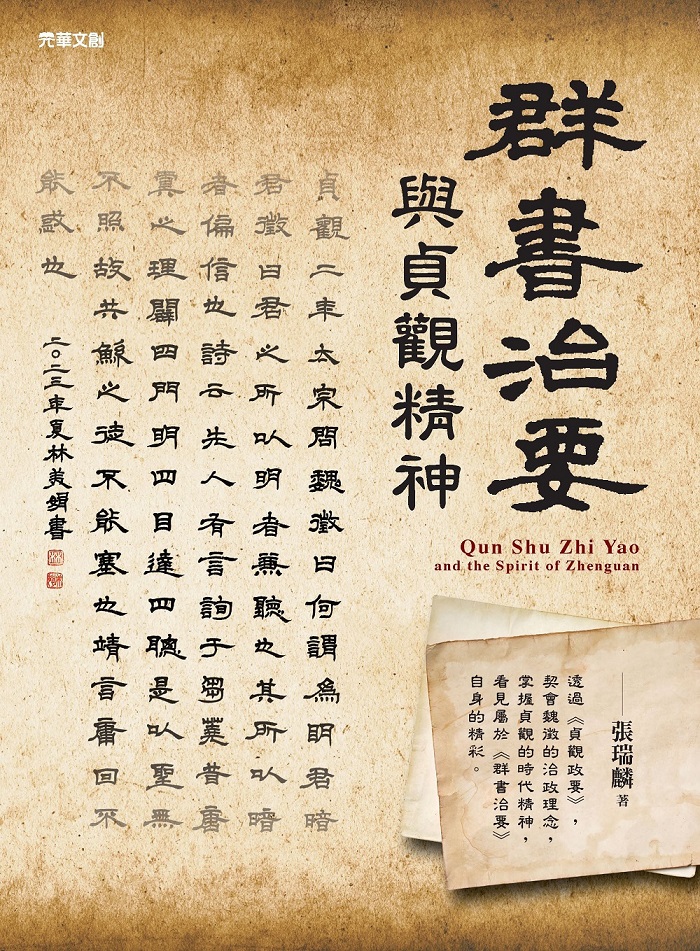 元華文創
群書治要
與貞觀精神
Qun Shu Zhi Yao
and the Spirit of Zhenguan
貞觀二年太宗問魏徵曰何謂為明君暗
君徵曰君之所以明者兼聽也其所以暗
者偏信也詩云先人有言詢于芻蕘昔唐
虞之理闢四門明四目達四聰是以聖無
不照故共鯀之徒不能塞也靖言庸回不
能惑也
二〇二三年夏林美娟書
——張瑞麟 著
透過《貞觀政要》，
契會魏徵的治政理念，
掌握貞觀的時代精神，
看見屬於《群書治要》
自身的精彩。